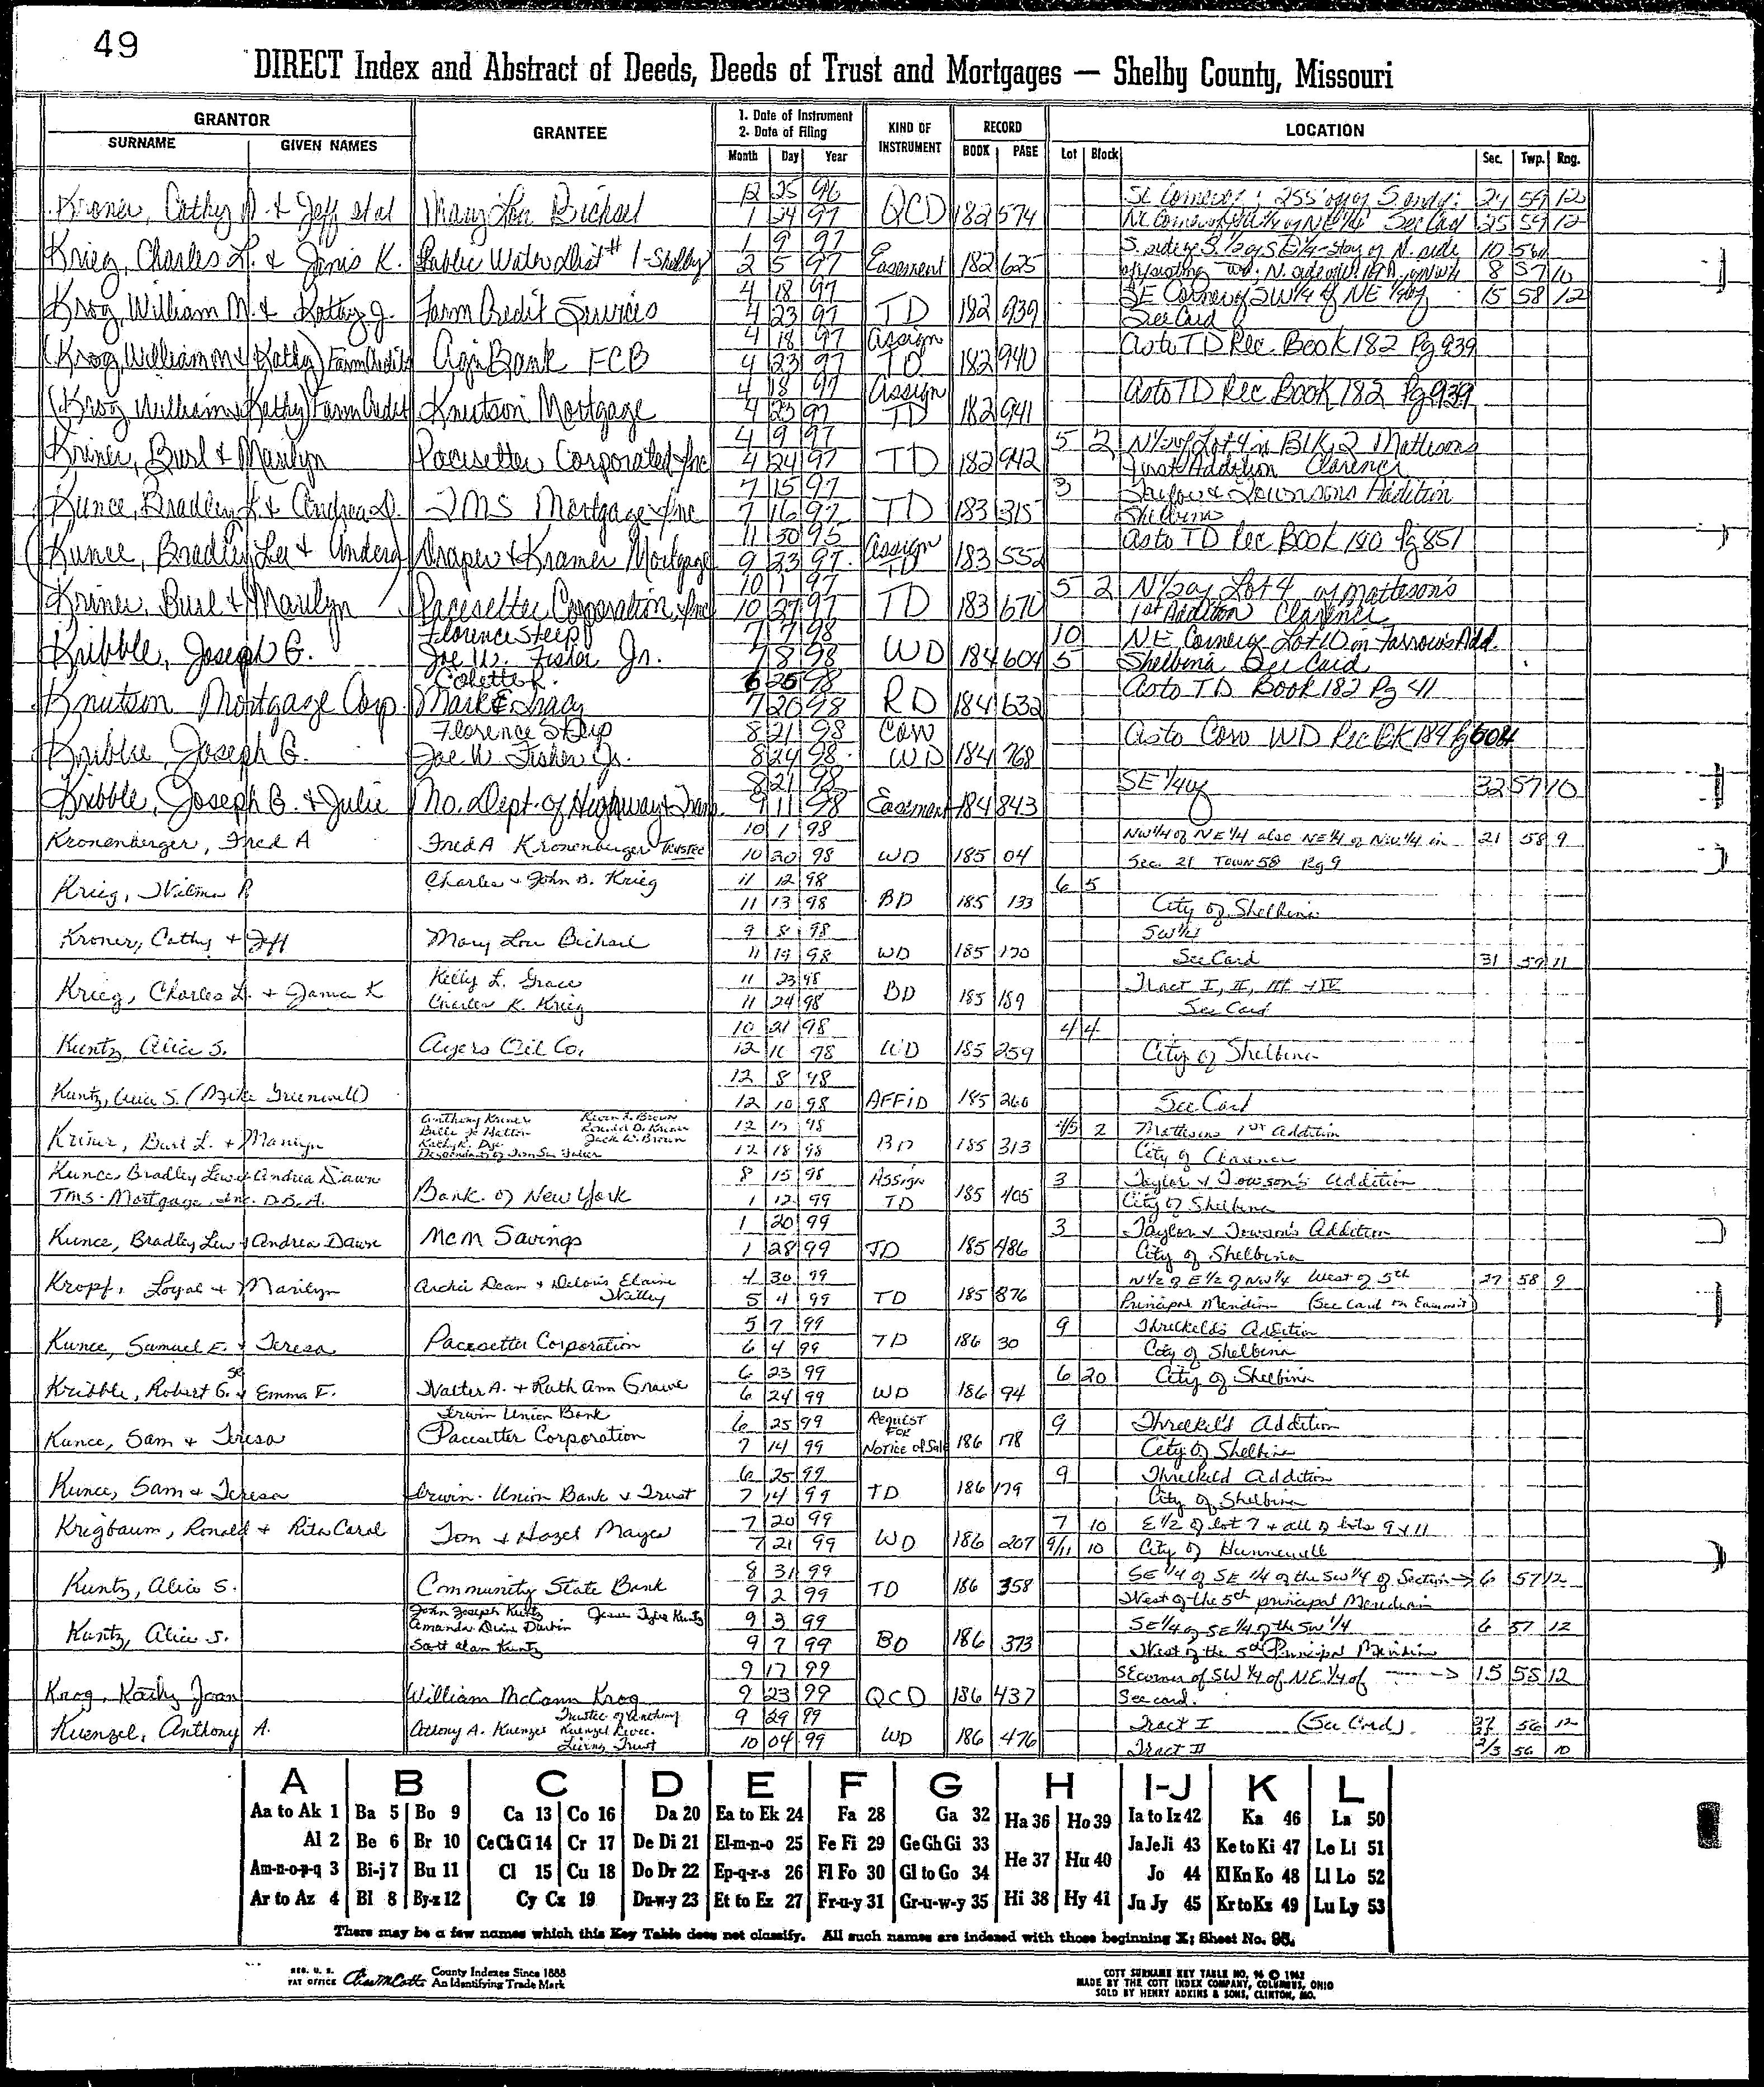 49
DIRECT Index and Abstract of Deeds, Deeds of Trust and Mortgages — Shelby County, Missouri
GRANTOR GRANTEE 1. Date of Instrument 2. Date of Filing KIND OF INSTRUMENT RECORD LOCATION
SURNAME GIVEN NAMES Month Day Year BOOK PAGE Lot Block Sec. Twp. Rng.
12 25 96 SE Corner 255' of S end 24 59 12
Kroner, Cathy & Jeff etal Mary Lou Bichsel 1 24 97 QCD 182 574 NE Corner of NE 1/4 See Card 25 59 12
1 9 97 10 56
Krieg, Charles L. & Janis K. Public Water Dist # 1-Shelby 2 5 97 Easement 182 625 8 57 10
4 18 97 SE Corner of SW 1/4 of NE 1/4 of 15 58 12
Krog, William M. & Kathy J. Farm Credit Services 4 23 97 TD 182 939 See Card
4 18 97 Assign As to TD Rec. Book 182 Pg 939
(Krog, William M & Kathy) Farm Credit Agri Bank FCB 4 23 97 TD 182 940
4 18 97 Assign As to TD Rec Book 182 Pg 939
(Krog William & Kathy) Farm Credit Knutson Mortgage 4 23 97 TD 182 941
4 9 97 5 2 N 1/2 of Lot 4 in Blk 2 Mattesons
Kriner, Burl & Marilyn Pacesetter Corporated Inc 4 24 97 TD 182 942 First Addition Clarence
7 15 97 3 Addition
Kunce, Bradley L. & Andrea D. TMS Mortgage Inc 7 16 97 TD 183 315 Shelbina
11 30 95 Assign As to TD Rec Book 180 Pg 851
(Kunce, Bradley Lee & Andera) Draper & Kramer Mortgage 9 23 97 TD 183 552
10 1 97 5 2 N 1/2 of Lot 4 of Matteson's
Kriner, Burl & Marilyn Pacesetter Corporation, Inc 10 27 97 TD 183 670 1st Addition Clarence
Florence Steep 7 7 98 10 NE Corner of Lot 10 in Farrow's Add.
Kribble, Joseph G. Joe W. Fisher Jr. 7 8 98 WD 184 604 5 Shelbina See Card
Colette R. 6 26 98 As to TD Book 182 Pg 411
Knutson Mortgage Corp. Mark E Tracy 7 20 98 RD 184 632
Florence Steep 8 21 98 Corr As to Corr WD Rec BK 184 Pg 604
Kribble, Joseph G. Joe W. Fisher Jr. 8 24 98 WD 184 768
8 21 98 SE 1/4 of 32 57 10
Kribble, Joseph G. & Julie Mo. Dept. of Highway & Trans. 9 11 98 Easement 184 843
10 1 98 NW 1/4 of NE 1/4 also NE 1/4 of NW 1/4 in 21 58 9
Kronenberger, Fred A Fred A Kronenberger Trustee 10 20 98 WD 185 04 Sec. 21 Town 58 Rg 9
Charles & John B. Krieg 11 12 98 6 5
Krieg, Wilma R 11 13 98 BD 185 133 City of Shelbina
9 8 98 SW 1/4
Kroner, Cathy & Jeff Mary Lou Bichsel 11 19 98 WD 185 170 See Card 31 59 11
Kelly L. Grace 11 23 98 Tract I, II, III & IV
Krieg, Charles L. & Janis K Charles K. Krieg 11 24 98 BD 185 189 See Card
10 21 98 4 4
Kuntz, Alice S. Ayers Oil Co. 12 10 98 WD 185 259 City of Shelbina
12 8 98
Kuntz, Alice S. (Mike Greenwell) 12 10 98 AFFID 185 260 See Card
Anthony Kriner Kevin L. Brown 12 17 98 4/5 2 Mattesons 1st Addition
Billie Jo Hatton Ronald D. Kriner
Kriner, Burl L. & Marilyn Kathy K. Dye Jack W. Brown 12 18 98 BD 185 313 City of Clarence
Kunce, Bradley Lew & Andrea Dawn 8 15 98 Assign 3 Taylor & Towson's Addition
TMS Mortgage, Inc. D.B.A. Bank of New York 1 12 99 TD 185 405 City of Shelbina
1 20 99 3 Taylor & Towson's Addition
Kunce, Bradley Lew & Andrea Dawn MCM Savings 1 28 99 TD 185 486 City of Shelbina
4 30 99 N 1/2 of E 1/2 of NW 1/4 West of 5th 27 58 9
Kropf, Loyal & Marilyn Archie Dean & Deloris Elaine Watley 5 4 99 TD 185 876 Principal Meridian (See Card on Easement)
5 7 99 9 Threlkeld's Addition
Kunce, Samuel E. & Teresa Pacesetter Corporation 6 4 99 TD 186 30 City of Shelbina
6 23 99 6 20 City of Shelbina
Kribble, Robert G. Sr & Emma F. Walter A. & Ruth Ann Grawe 6 24 99 WD 186 94
Irwin Union Bank 6 25 99 Request For 9 Threlkel'd Addition
Kunce, Sam & Teresa Pacesetter Corporation 7 14 99 Notice of Sale 186 178 City of Shelbina
6 25 99 9 Threlkeld Addition
Kunce, Sam & Teresa Irwin Union Bank & Trust 7 14 99 TD 186 179 City of Shelbina
7 20 99 7 10 E 1/2 of lot 7 & all of lots 9 & 11
Krigbaum, Ronald & Rita Carol Tom & Hazel Mayes 7 21 99 WD 186 207 9/11 10 City of Hunnewell
8 31 99 SE 1/4 of SE 1/4 of the SW 1/4 of Section → 6 57 12
Kuntz, Alice S. Community State Bank 9 2 99 TD 186 358 West of the 5th principal Meridian
John Joseph Kuntz Jesse Tyler Kuntz 9 3 99 SE 1/4 of SE 1/4 of the SW 1/4 6 57 12
Kuntz, Alice S. Amanda Durbin
Scott Alan Kuntz 9 7 99 BD 186 373 West of the 5th Principal Meridian
9 17 99 SE corner of SW 1/4 of NE 1/4 of → 15 58 12
Krog, Kathy Joan William McCann Krog 9 23 99 QCD 186 437 See card.
Trustee of Anthony 9 29 99 Tract I (See Card) 27 56 12
Kuenzel, Anthony A. Anthony A. Kuenzel Kuenzel Revoc. Living Trust 10 04 99 WD 186 476 Tract II 2/3 56 10
A B C D E F G H I-J K L
Aa to Ak 1 Ba 5 Bo 9 Ca 13 Co 16 Da 20 Ea to Ek 24 Fa 28 Ga 32 Ha 36 Ho 39 Ia to Iz 42 Ka 46 La 50
Al 2 Be 6 Br 10 Ce Ch Ci 14 Cr 17 De Di 21 El-m-n-o 25 Fe Fi 29 Ge Gh Gi 33 He 37 Hu 40 Ja Je Ji 43 Ke to Ki 47 Le Li 51
Am-n-o-p-q 3 Bi-j 7 Bu 11 Cl 15 Cu 18 Do Dr 22 Ep-q-r-s 26 Fl Fo 30 Gl to Go 34 Jo 44 Kl Kn Ko 48 Ll Lo 52
Ar to Az 4 Bl 8 By-z 12 Cy Cz 19 Du-w-y 23 Et to Ez 27 Fr-u-y 31 Gr-u-w-y 35 Hi 38 Hy 41 Ju Jy 45 Kr to Kz 49 Lu Ly 53
There may be a few names which this Key Table does not classify. All such names are indexed with those beginning X; Sheet No. 95.
REG. U. S. PAT OFFICE County Indexes Since 1888 An Identifying Trade Mark
COTT SURNAME KEY TABLE NO. 96 © 1962
MADE BY THE COTT INDEX COMPANY, COLUMBUS, OHIO
SOLD BY HENRY ADKINS & SONS, CLINTON, MO.